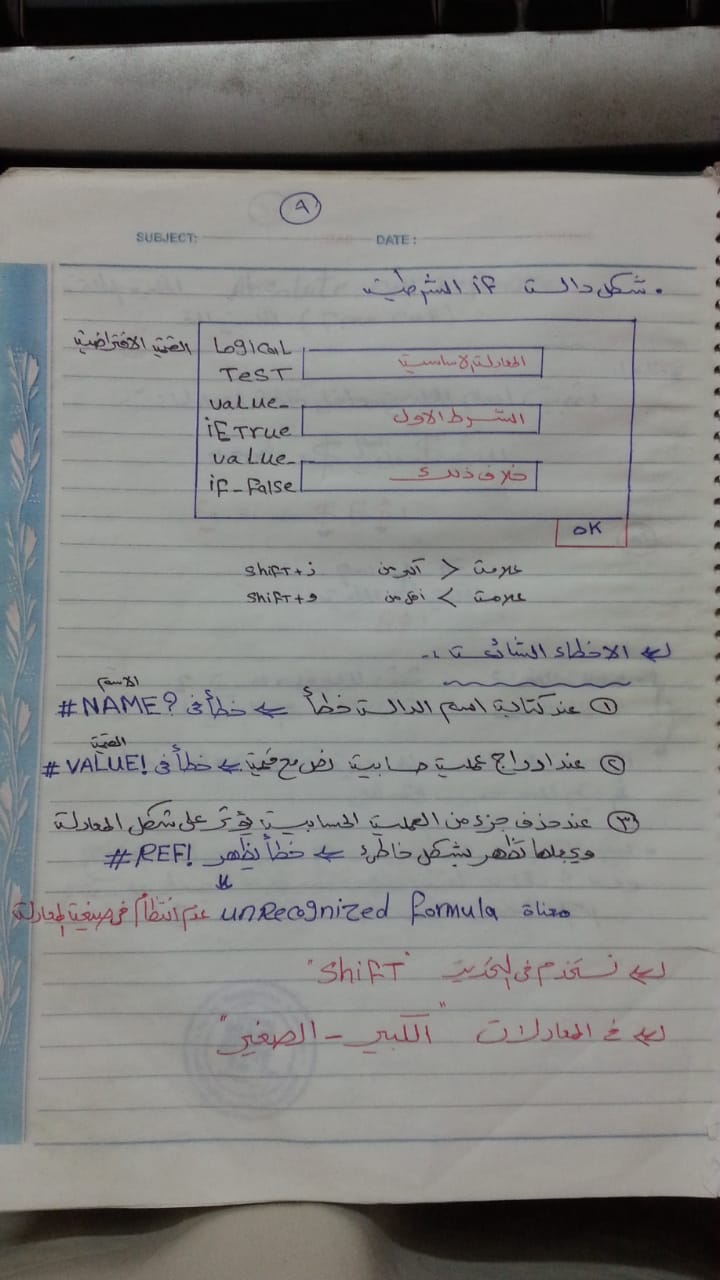 ٩
SUBJECT: DATE :
. شكل دالة if الشرطية
القيمة الافتراضية
Logical
TEST
المعادلة الاساسية
value_
iFTrue
الشرط الاول
value_
iF_False
خلاف ذلك
OK
علامة > أكبر من ShiFT+ز
علامة < أقل من ShiFT+و
الاخطاء الشائعة :-
الاسم
① عند كتابة اسم الدالة خطأ ← خطأ في #NAME?
القيمة
② عند ادراج عملية حسابية نص مع قيمة ← خطأ في #VALUE!
③ عند حذف جزء من العملية الحسابية يؤثر على شكل المعادلة
ويجعلها تظهر بشكل خاطئ ← خطأ يظهر #REF!
معناة unRecognized formula عدم انتظام في صيغة المعادلة
نستخدم في التحديد "ShiFT"
في المعادلات "الكبير - الصغير"